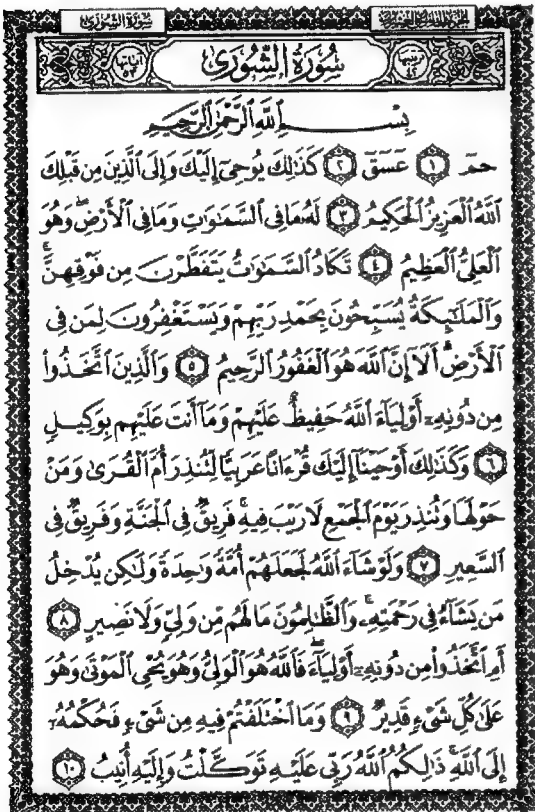 سُورَةُ الشُّورَىٰ
سُورَةُ الشُّورَىٰ
ترتيبها ٤٢
آياتها ٥٣
بِسْمِ ٱللَّهِ ٱلرَّحْمَٰنِ ٱلرَّحِيمِ
حمٓ ١ عٓسٓقٓ ٢ كَذَٰلِكَ يُوحِىٓ إِلَيْكَ وَإِلَى ٱلَّذِينَ مِن قَبْلِكَ
ٱللَّهُ ٱلْعَزِيزُ ٱلْحَكِيمُ ٣ لَهُۥ مَا فِى ٱلسَّمَٰوَٰتِ وَمَا فِى ٱلْأَرْضِ ۖ وَهُوَ
ٱلْعَلِىُّ ٱلْعَظِيمُ ٤ تَكَادُ ٱلسَّمَٰوَٰتُ يَتَفَطَّرْنَ مِن فَوْقِهِنَّ ۚ
وَٱلْمَلَٰٓئِكَةُ يُسَبِّحُونَ بِحَمْدِ رَبِّهِمْ وَيَسْتَغْفِرُونَ لِمَن فِى
ٱلْأَرْضِ ۗ أَلَآ إِنَّ ٱللَّهَ هُوَ ٱلْغَفُورُ ٱلرَّحِيمُ ٥ وَٱلَّذِينَ ٱتَّخَذُوا۟
مِن دُونِهِۦٓ أَوْلِيَآءَ ٱللَّهُ حَفِيظٌ عَلَيْهِمْ وَمَآ أَنتَ عَلَيْهِم بِوَكِيلٍ
٦ وَكَذَٰلِكَ أَوْحَيْنَآ إِلَيْكَ قُرْءَانًا عَرَبِيًّا لِّتُنذِرَ أُمَّ ٱلْقُرَىٰ وَمَنْ
حَوْلَهَا وَتُنذِرَ يَوْمَ ٱلْجَمْعِ لَا رَيْبَ فِيهِ ۚ فَرِيقٌ فِى ٱلْجَنَّةِ وَفَرِيقٌ فِى
ٱلسَّعِيرِ ٧ وَلَوْ شَآءَ ٱللَّهُ لَجَعَلَهُمْ أُمَّةً وَٰحِدَةً وَلَٰكِن يُدْخِلُ
مَن يَشَآءُ فِى رَحْمَتِهِۦ ۚ وَٱلظَّٰلِمُونَ مَا لَهُم مِّن وَلِىٍّ وَلَا نَصِيرٍ ٨
أَمِ ٱتَّخَذُوا۟ مِن دُونِهِۦٓ أَوْلِيَآءَ ۖ فَٱللَّهُ هُوَ ٱلْوَلِىُّ وَهُوَ يُحْىِ ٱلْمَوْتَىٰ وَهُوَ
عَلَىٰ كُلِّ شَىْءٍ قَدِيرٌ ٩ وَمَا ٱخْتَلَفْتُمْ فِيهِ مِن شَىْءٍ فَحُكْمُهُۥٓ
إِلَى ٱللَّهِ ۚ ذَٰلِكُمُ ٱللَّهُ رَبِّى عَلَيْهِ تَوَكَّلْتُ وَإِلَيْهِ أُنِيبُ ١٠